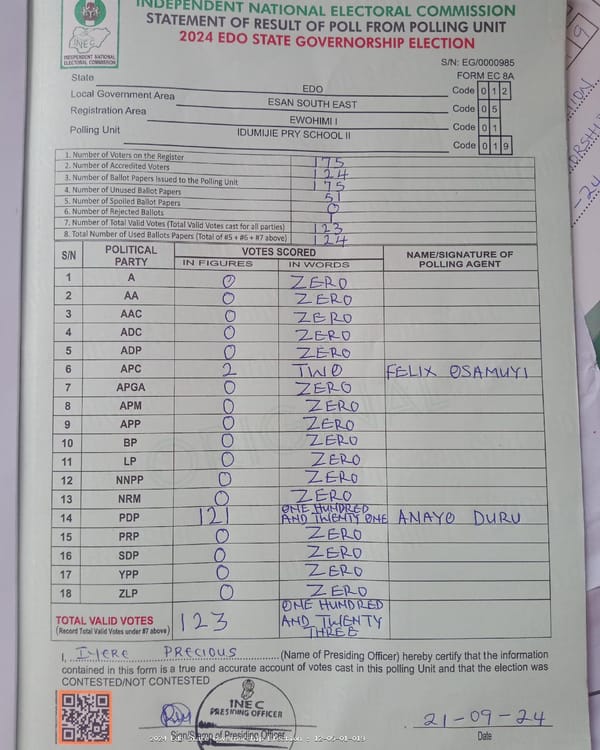 INDEPENDENT NATIONAL ELECTORAL COMMISSION
STATEMENT OF RESULT OF POLL FROM POLLING UNIT
2024 EDO STATE GOVERNORSHIP ELECTION
INEC
INDEPENDENT NATIONAL
ELECTORAL COMMISSION
S/N: EG/0000985
FORM EC 8A
State EDO Code 0 1 2
Local Government Area ESAN SOUTH EAST Code 0 5
Registration Area EWOHIMI I Code 0 1
Polling Unit IDUMIJIE PRY SCHOOL II Code 0 1 9
1. Number of Voters on the Register 175
2. Number of Accredited Voters 124
3. Number of Ballot Papers Issued to the Polling Unit 175
4. Number of Unused Ballot Papers 51
5. Number of Spoiled Ballot Papers 0
6. Number of Rejected Ballots 1
7. Number of Total Valid Votes (Total Valid Votes cast for all parties) 123
8. Total Number of Used Ballots Papers (Total of #5 + #6 + #7 above) 124
S/N POLITICAL PARTY VOTES SCORED NAME/SIGNATURE OF POLLING AGENT
IN FIGURES IN WORDS
1 A 0 ZERO
2 AA 0 ZERO
3 AAC 0 ZERO
4 ADC 0 ZERO
5 ADP 0 ZERO
6 APC 2 TWO FELIX OSAMUYI
7 APGA 0 ZERO
8 APM 0 ZERO
9 APP 0 ZERO
10 BP 0 ZERO
11 LP 0 ZERO
12 NNPP 0 ZERO
13 NRM 0 ZERO
14 PDP 121 ONE HUNDRED AND TWENTY ONE ANAYO DURU
15 PRP 0 ZERO
16 SDP 0 ZERO
17 YPP 0 ZERO
18 ZLP 0 ZERO
TOTAL VALID VOTES 123 ONE HUNDRED AND TWENTY THREE
(Record Total Valid Votes under #7 above)
I, IYERE PRECIOUS (Name of Presiding Officer) hereby certify that the information
contained in this form is a true and accurate account of votes cast in this polling Unit and that the election was
CONTESTED/NOT CONTESTED
INEC
PRESIDING OFFICER
21-09-24
Sign/Stamp of Presiding Officer Date